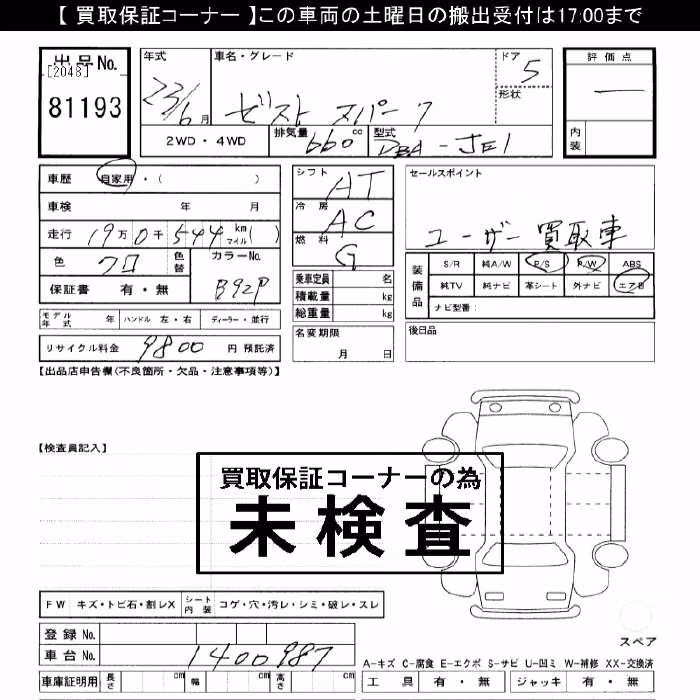 【 買取保証コーナー 】この車両の土曜日の搬出受付は17:00まで
出品No.
[2048]
81193
年式
23/6月
車名・グレード
ゼスト スパーク
ドア
5
形状
2WD・4WD
排気量 660 cc
型式 DBA-JE1
評価点
―
内装
車歴 自家用・( )
車検 年 月
走行 19万0千544 km マイル ( )
色 クロ 色替
カラーNo. B92P
保証書 有・無
シフト AT
冷房 AC
燃料 G
乗車定員 名
積載量 kg
総重量 kg
セールスポイント
ユーザー買取車
装備品
S/R 純A/W P/S P/W ABS
純TV 純ナビ 革シート 外ナビ エアB
ナビ型番:
モデル年式 年 ハンドル 左・右 ディーラー・並行
名変期限
月 日
後日品
リサイクル料金 9800 円 預託済
【出品店申告欄(不良箇所・欠品・注意事項等)】
【検査員記入】
買取保証コーナーの為
未検査
FW キズ・トビ石・割レX シート内装 コゲ・穴・汚レ・シミ・破レ・スレ
登録 No.
車台 No. 1400987
スペア
A-キズ C-腐食 E-エクボ S-サビ U-凹ミ W-補修 XX-交換済
車庫証明用 長さ cm 幅 cm 高さ cm
工具 有・無 ジャッキ 有・無